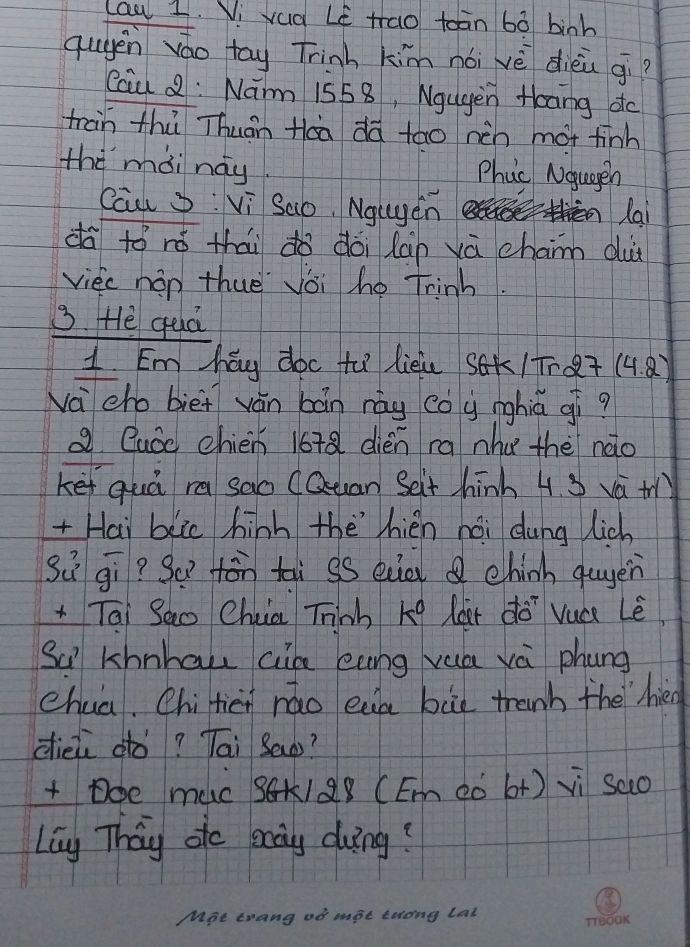 Câu 1. Vị vua Lê trao toàn bộ binh
quyền vào tay Trịnh Kiểm nói về điều gì?
Câu 2: Năm 1558, Nguyễn Hoàng đc
trấn thủ Thuận Hóa đã tạo nên một tình
thế mới này.
Phúc Nguyên
Câu 3: Vì sao, Nguyễn lại
đã tỏ rõ thái độ đối lập và chấm dứt
việc nộp thuế với họ Trịnh.
3. Hệ quả
1. Em hãy đọc tư liệu SGK/Tr27 (4.2)
và cho biết văn bản này có ý nghĩa gì?
2. Cuộc chiến 1672 diễn ra như thế nào
kết quả ra sao (Quan Sát hình 4.3 và trl)
+ Hai bức hình thể hiện nội dung lịch
sử gì? Sự tồn tại SS của 2 chính quyền
+ Tại Sao Chúa Trịnh ko lật đổ Vua Lê,
Sự khnhau của cung vua và phung
chúa. Chi tiết nào của bức tranh thể hiện
điều đó? Tại Sao?
+ Đọc mục SGK/28 (Em có bt) vì sao
Lũy Thầy đc xây dựng?
Một trang vở một tương lai
TTBOOK